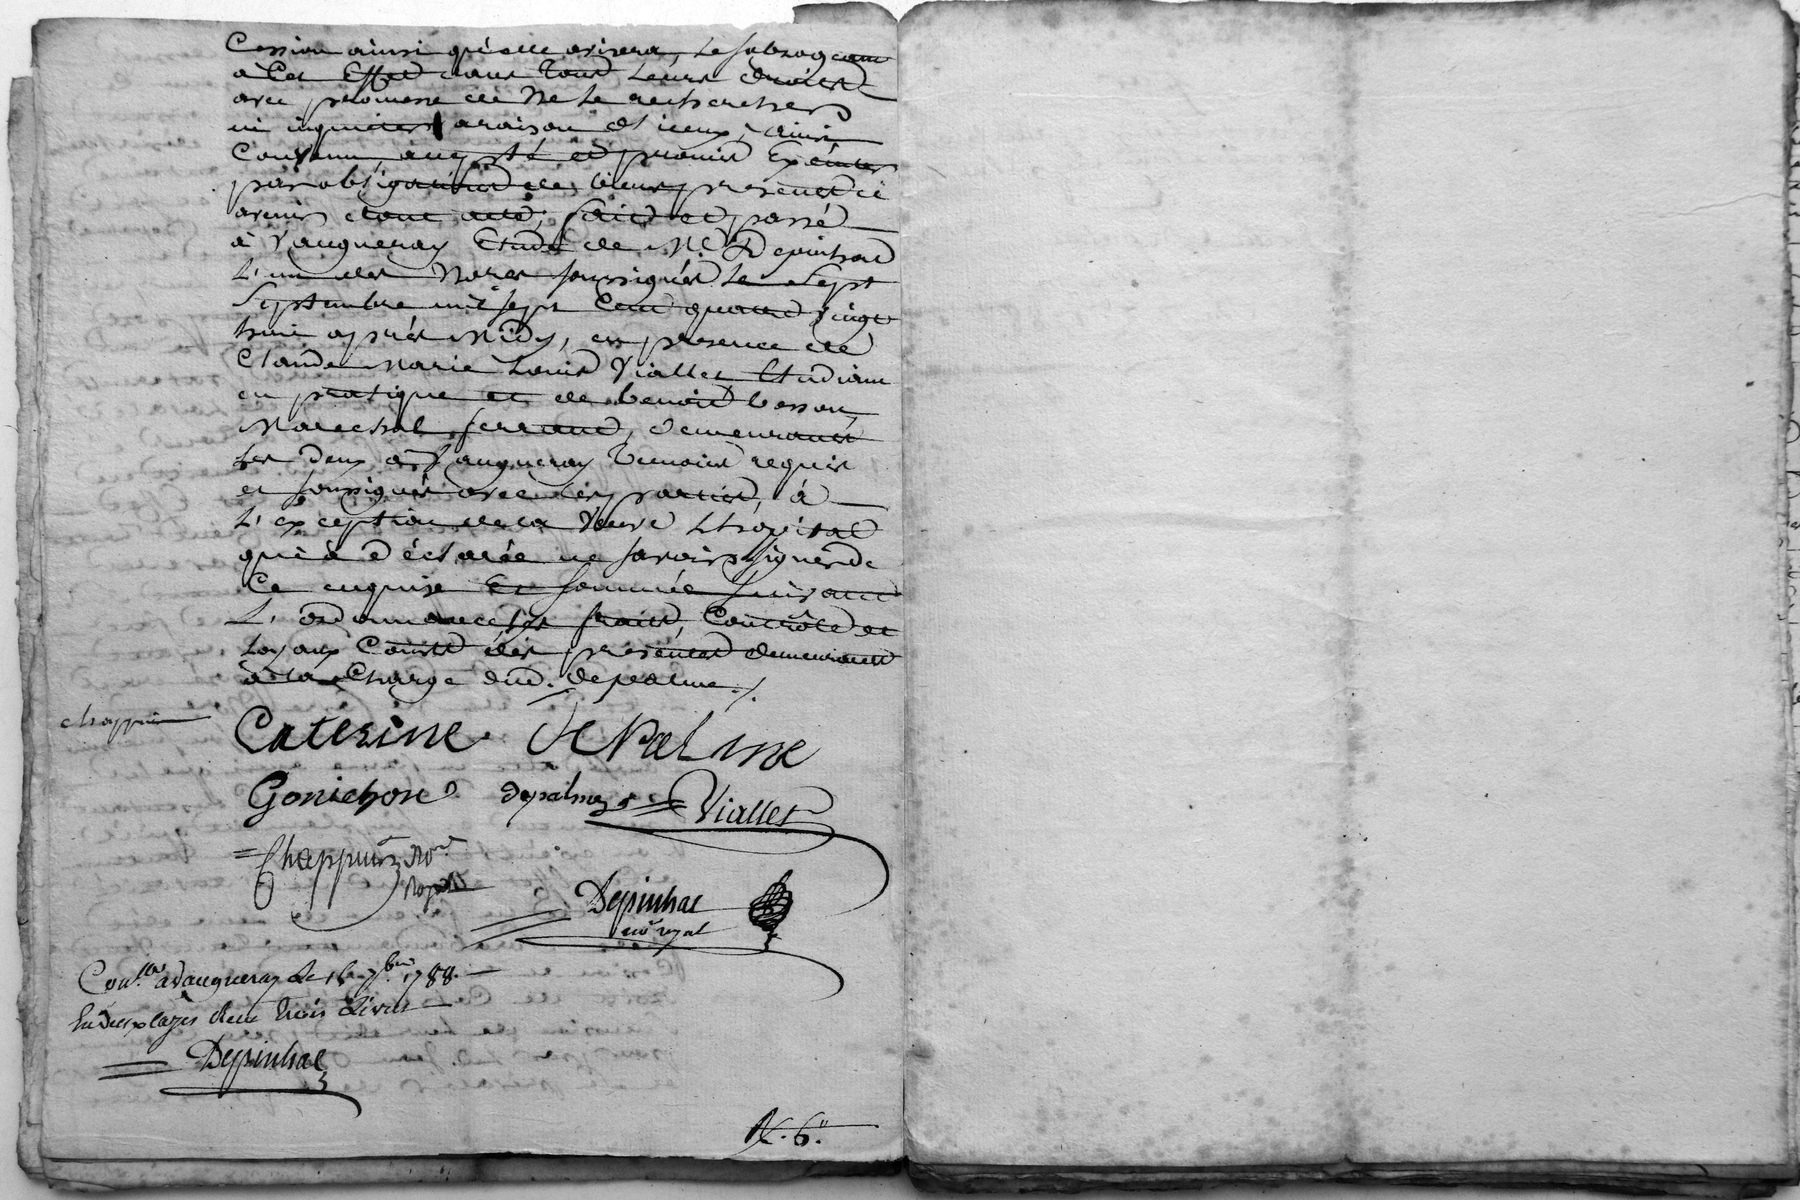 Cession ainsi qu'elle avisera, Le subrogeant
à Cet Effet dans Tous Leurs droits
avec promesse de Ne Le rechercher
ni inquieter araison d'iceux, ainsi
Convenu, accepté et promis Exécuter
par obligations de biens presents et
avenir dont acte, fait et passé
à Vaugneray Etude de Me. Depinhac
L'un des Nores soussignés Le Sept
Septembre mil sept Cent quatre vingt
huit après Midy, en presence de
Claude Marie Louis Viallet Etudiant
en pratique et de benoit besson
Marechal ferrant, demeurants
Les deux à Vaugneray Temoins requis
et soussignés avec les parties, à
L'exception de la Veuve Lhopital
qui à déclarée ne savoir signer de
Ce enquise Et sommée suivant
L'ordonnance les frais, Contrôle et
Loyaux Couts des presentes demeurants
à la Charge dud. depalme ./.
chappuis
Caterine dePalme
Gonichon depalme Viallet
Chappuis Nore
Royal
Depinhac
nore royal
Conllé à Vaugneray Le 16 7bre 1788.
trois Livres
Depinhac